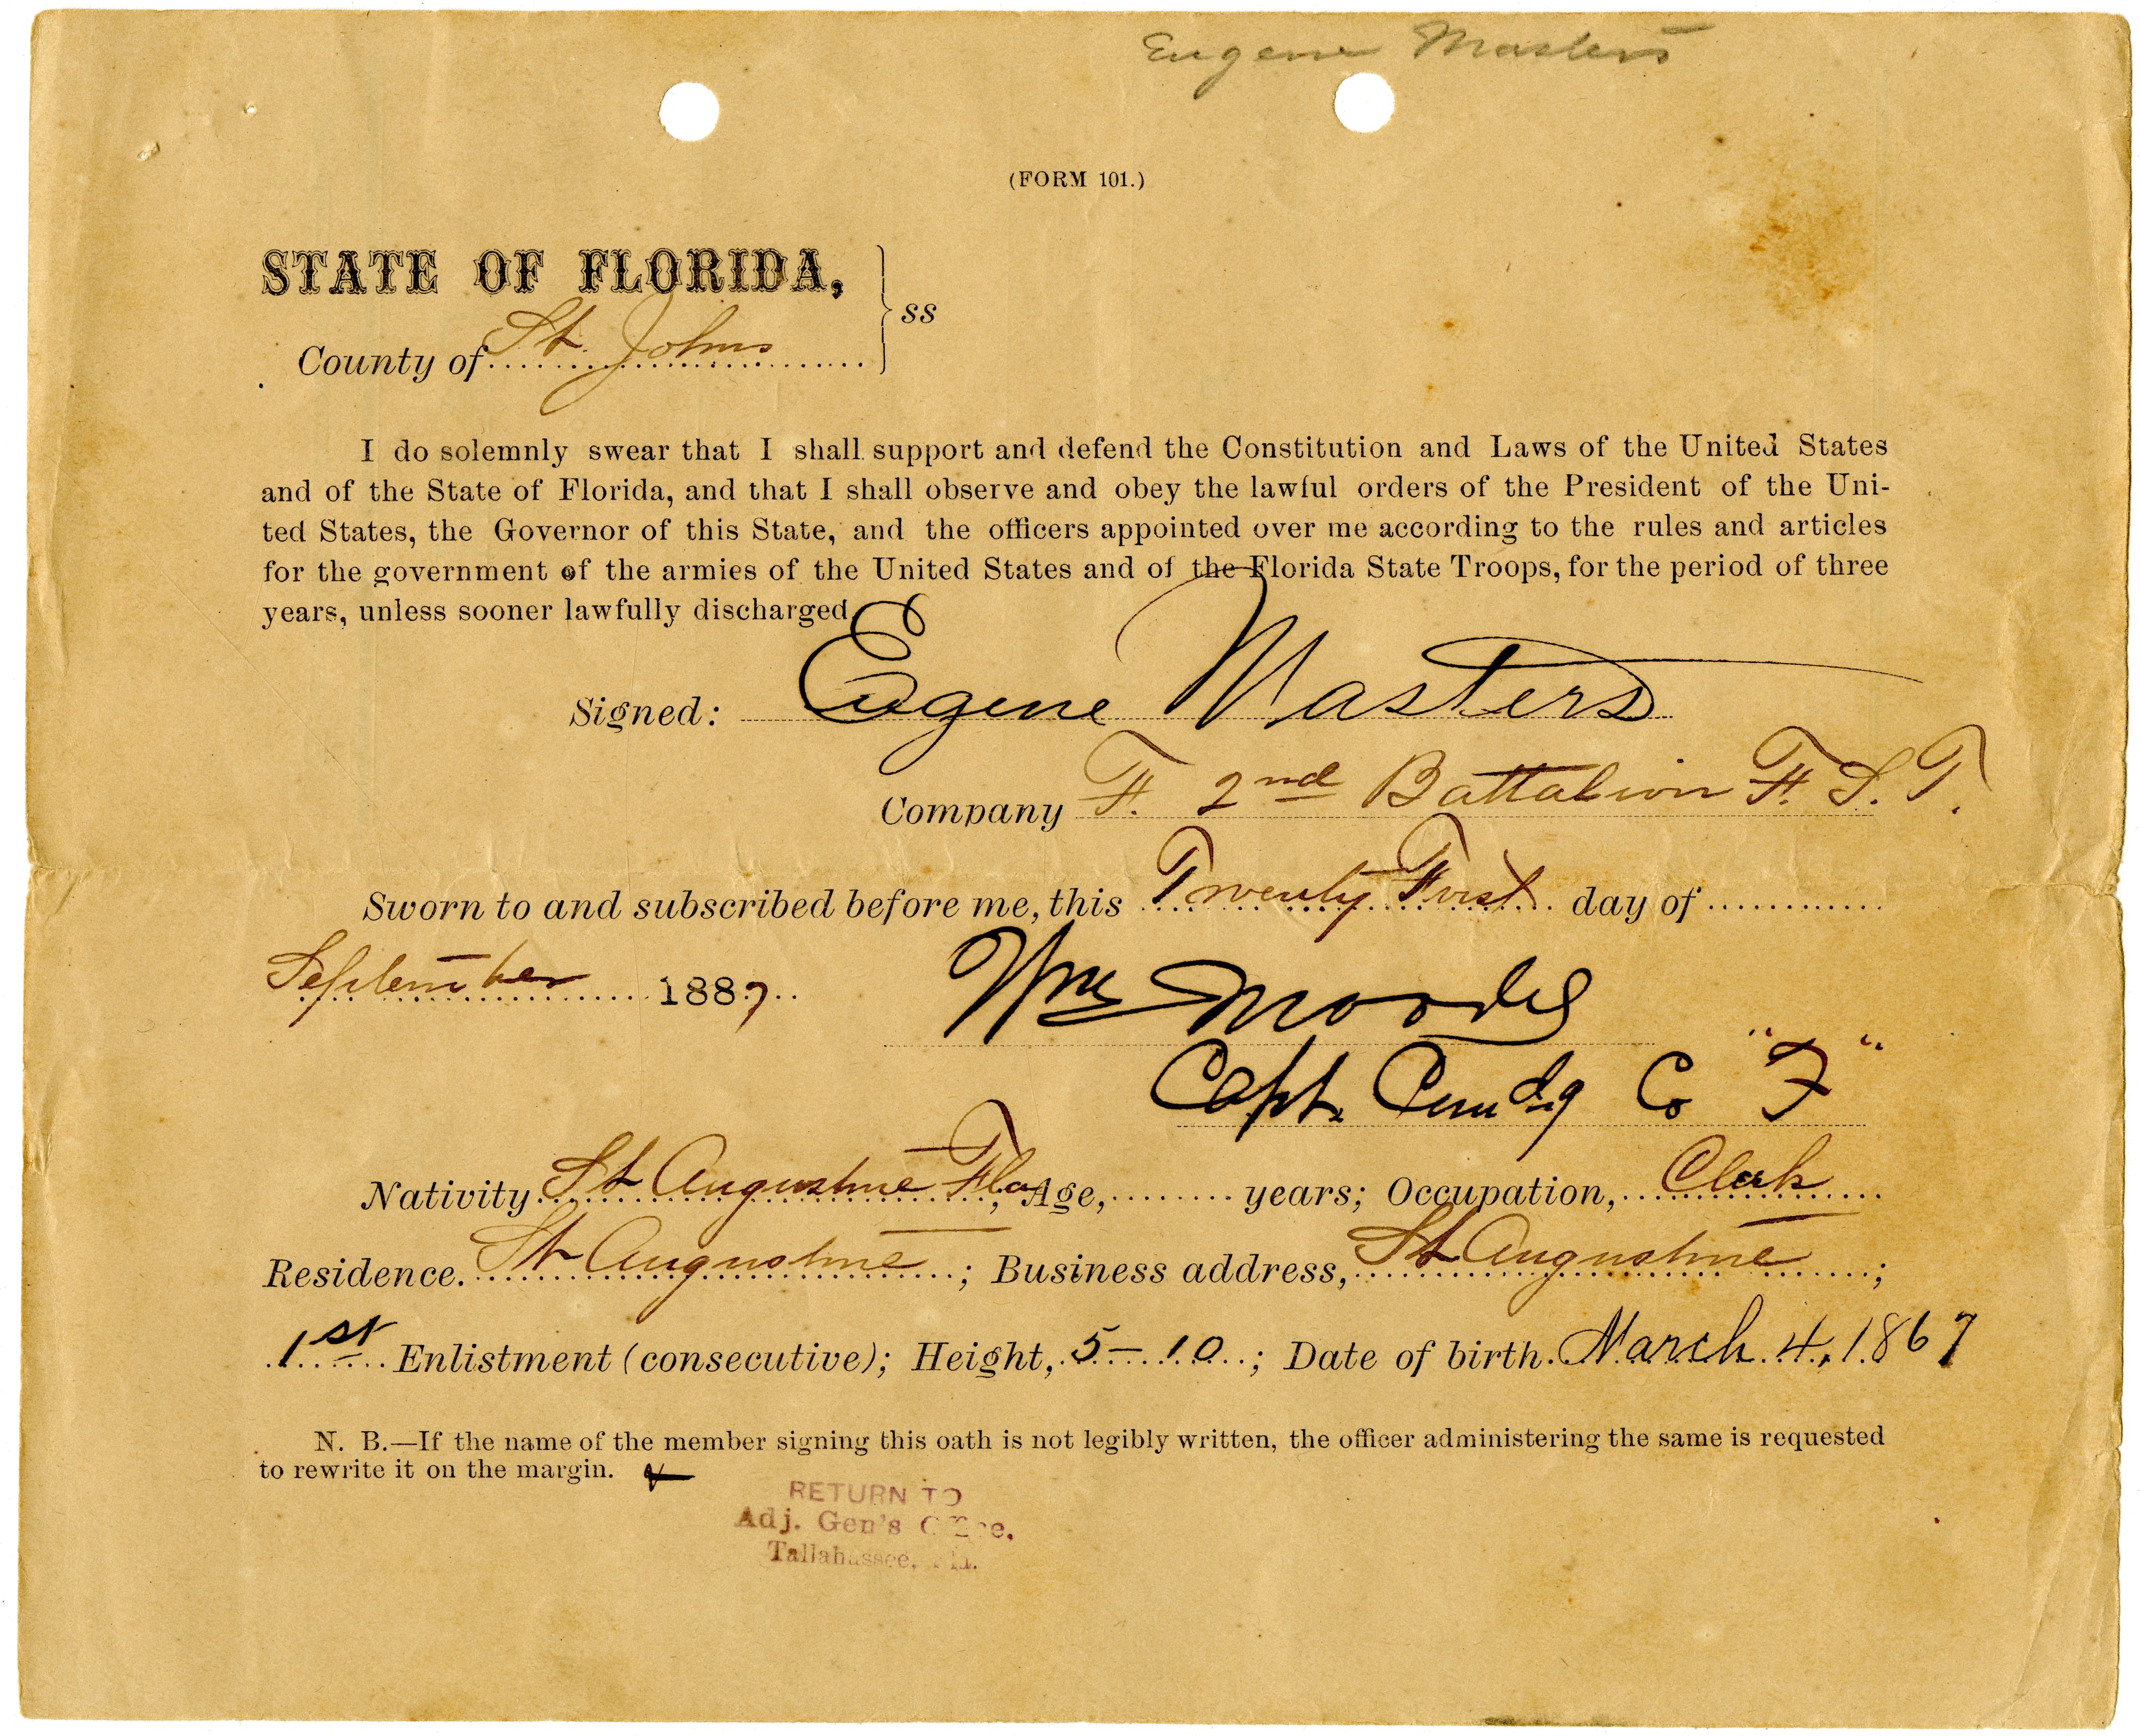 Eugene Masters
(FORM 101.)
STATE OF FLORIDA,
ss
County of St. Johns
I do solemnly swear that I shall support and defend the Constitution and Laws of the United States
and of the State of Florida, and that I shall observe and obey the lawful orders of the President of the Uni-
ted States, the Governor of this State, and the officers appointed over me according to the rules and articles
for the government of the armies of the United States and of the Florida State Troops, for the period of three
years, unless sooner lawfully discharged
Signed: Eugene Masters
Company F. 2nd Battalion F. S. T.
Sworn to and subscribed before me, this Twenty First day of
September 1887
Wm
Capt. Cmdg Co "F"
Nativity St Augustine Fla, Age, years; Occupation, Clerk
Residence. St Augustine; Business address, St Augustine;
1st Enlistment (consecutive); Height, 5-10; Date of birth. March 4, 1867
N. B.—If the name of the member signing this oath is not legibly written, the officer administering the same is requested
to rewrite it on the margin.
RETURN TO
Adj. Gen's Office,
Tallahassee, Fla.